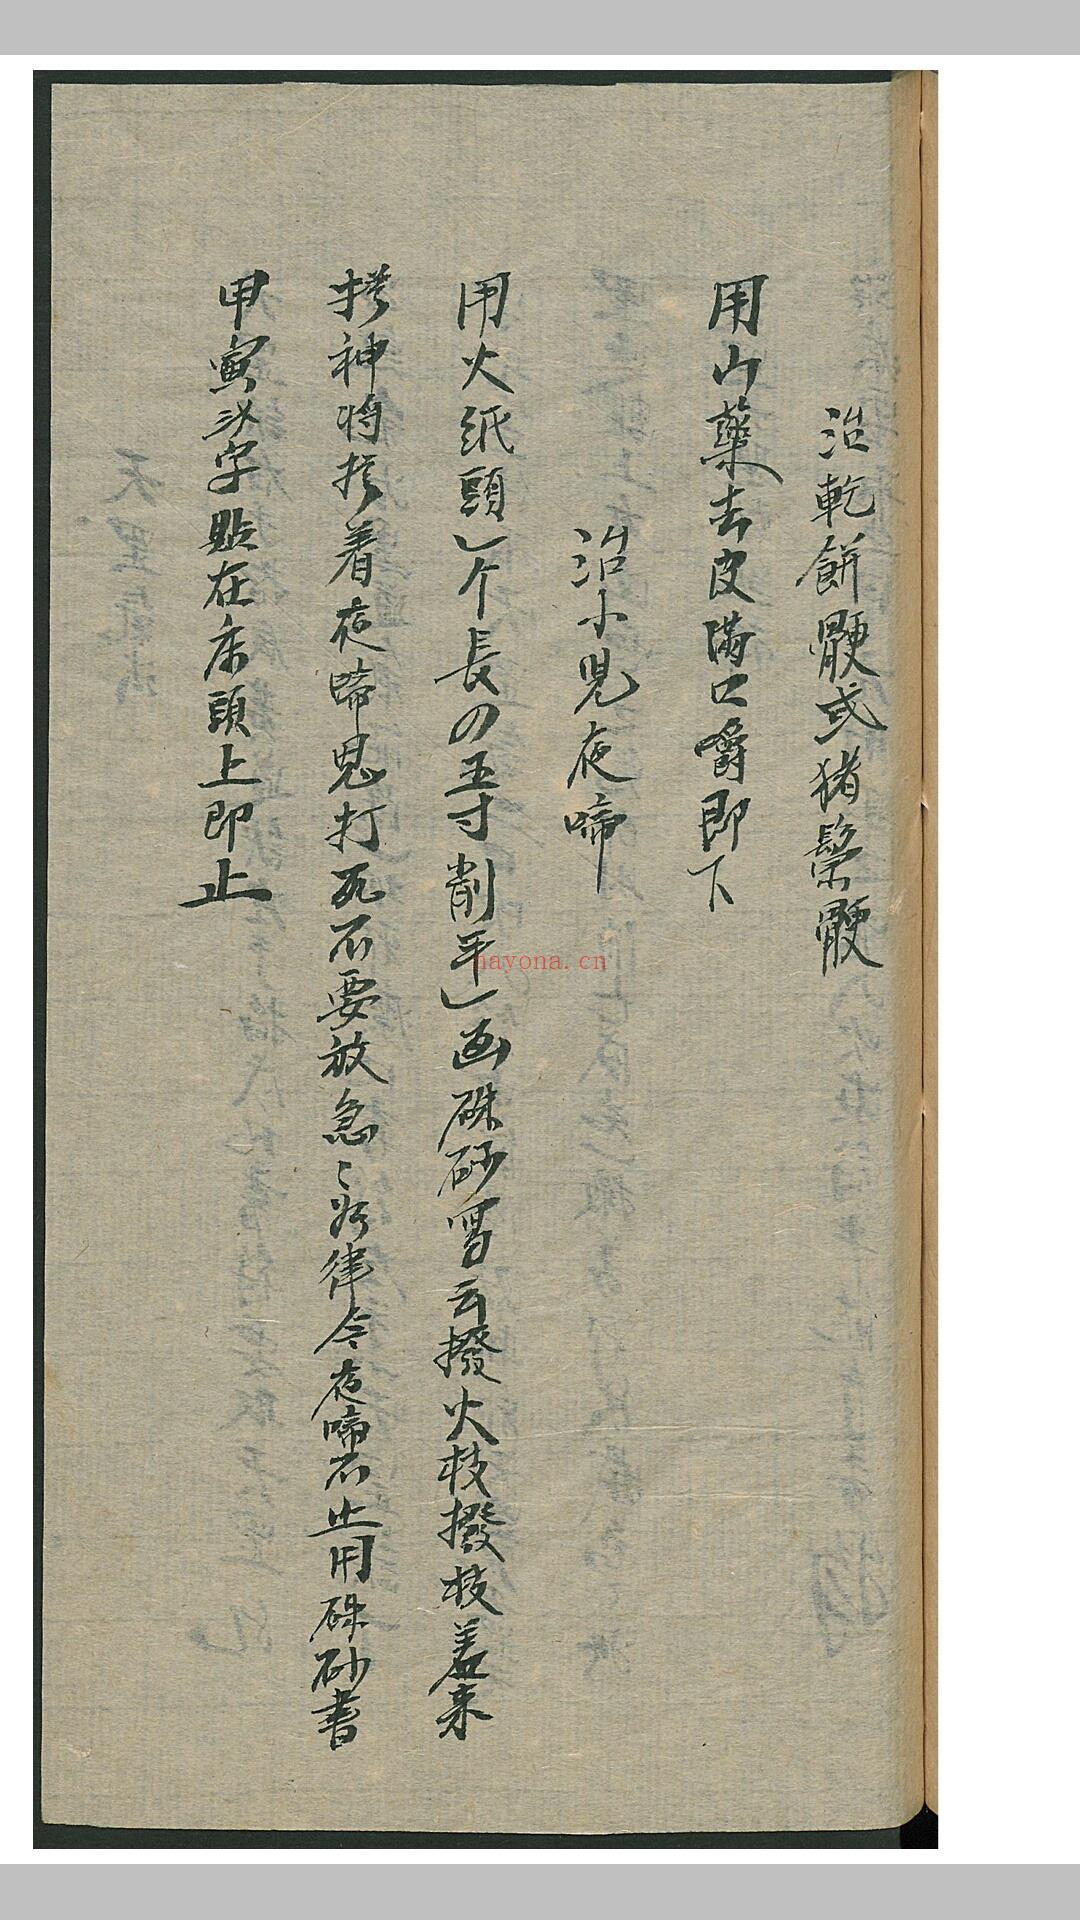 治乾餅骾或猪鬃骾
用山藥去皮滿口嚼即下
治小兒夜啼
用火紙頭一个長四五寸削平一面硃砂写云撥火杖撥杖差来
神將 着夜啼鬼打死不要放急〻如律令夜啼不止用硃砂書
甲寅 字貼在床頭上即止
nayona.cn